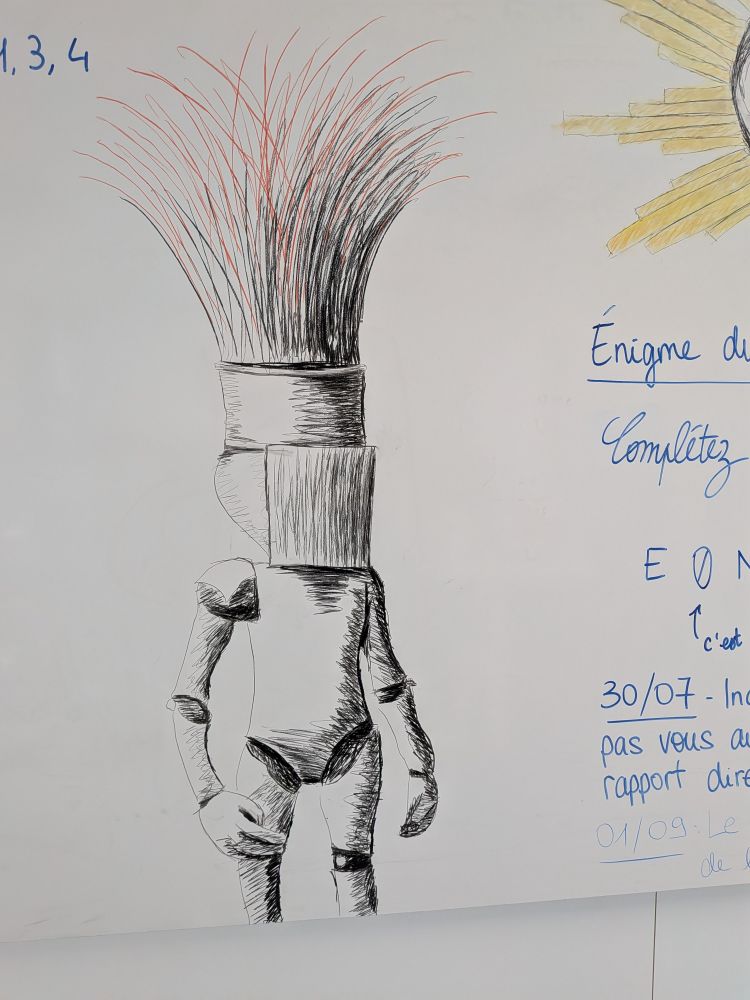 1, 3, 4
Énigme du
Complétez
E Ø N
↑ c'est
30/07 - Ind
pas vous au
rapport dire
01/09 : Le
de l